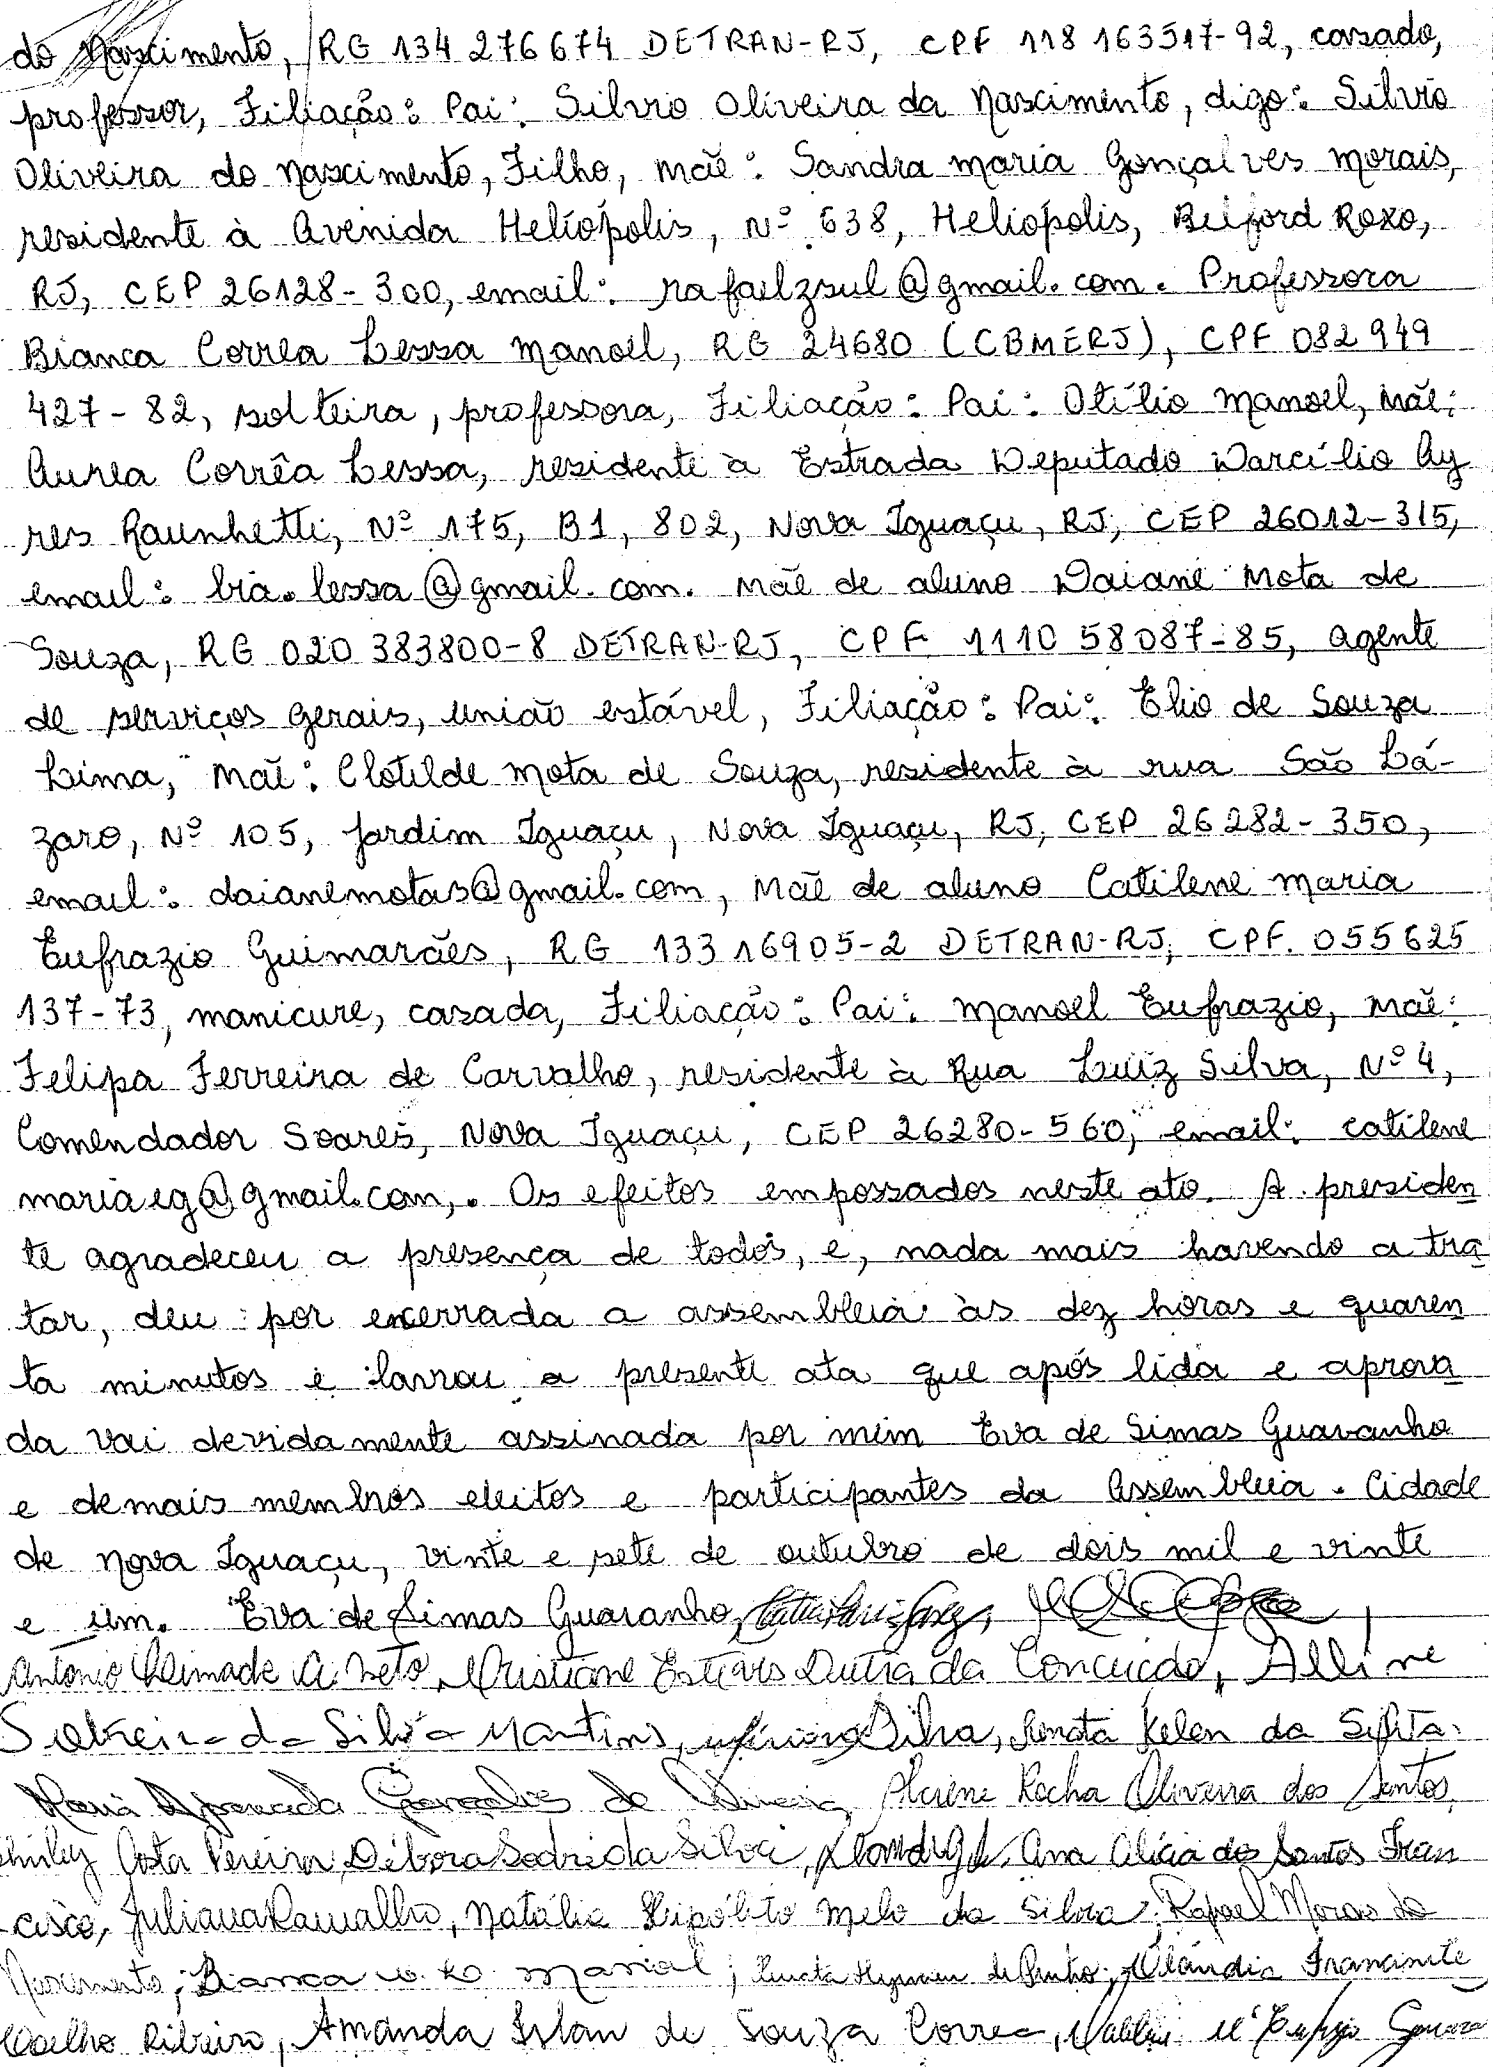 do Nascimento, RG 134 276674 DETRAN-RJ, CPF 118 163517-92, casado,
professor, Filiação: Pai: Silvio Oliveira da Nascimento, digo: Silvio
Oliveira do Nascimento, Filho, Mãe: Sandra Maria Gonçalves Morais,
residente à Avenida Heliópolis, Nº 638, Heliópolis, Belford Roxo,
RJ, CEP 26128-300, email: rafaelzsul@gmail.com. Professora
Bianca Corrêa Lessa Manoel, RG 24680 (CBMERJ), CPF 082 949
427-82, solteira, professora, Filiação: Pai: Otílio Manoel, Mãe:
Aurea Corrêa Lessa, residente à Estrada Deputado Darcílio Ay
res Raunhetti, Nº 175, B1, 802, Nova Iguaçu, RJ, CEP 26012-315,
email: bia.lessa@gmail.com. Mãe de aluno Daiane Mota de
Souza, RG 020 383800-8 DETRAN-RJ, CPF 1110 58087-85, agente
de serviços gerais, união estável, Filiação: Pai: Elio de Souza
Lima, Mãe: Clotilde Mota de Souza, residente à rua São Lá-
zaro, Nº 105, Jardim Iguaçu, Nova Iguaçu, RJ, CEP 26282-350,
email: daianemotas@gmail.com, Mãe de aluno Catilene Maria
Eufrazio Guimarães, RG 133 16905-2 DETRAN-RJ, CPF. 055625
137-73, manicure, casada, Filiação: Pai: Manoel Eufrazio, Mãe:
Felipa Ferreira de Carvalho, residente à Rua Luiz Silva, Nº 4,
Comendador Soares, Nova Iguaçu, CEP 26280-560, email: catilene
mariaeg@gmail.com,. Os efeitos empossados neste ato. A presiden
te agradeceu a presença de todos, e, nada mais havendo a tra
tar, deu por encerrada a assembleia às dez horas e quaren
ta minutos e lavrou a presente ata que após lida e aprova
da vai devidamente assinada por mim Eva de Simas Guaranho
e demais membros eleitos e participantes da Assembleia. Cidade
de Nova Iguaçu, vinte e sete de outubro de dois mil e vinte
e um. Eva de Simas Guaranho,
Antonio A. Neto, Cristiane Esteves Dutra da Conceição, Alline
da Silva Martins, Silva, Renata Kelen da Silva
Maria Aparecida Gonçalves de Oliveira, Rocha Oliveira dos Santos,
Shirley Costa Pereira, Débora Sodré da Silva, Ana Alícia dos Santos Fran
cisco, Juliana Ramalho, Natália Hipólito Melo da Silva, Rafael Morais do
Nascimento; Bianca Manoel; de Pinho; Claudia Francinete
Coelho Ribeiro, Amanda de Souza Correa,